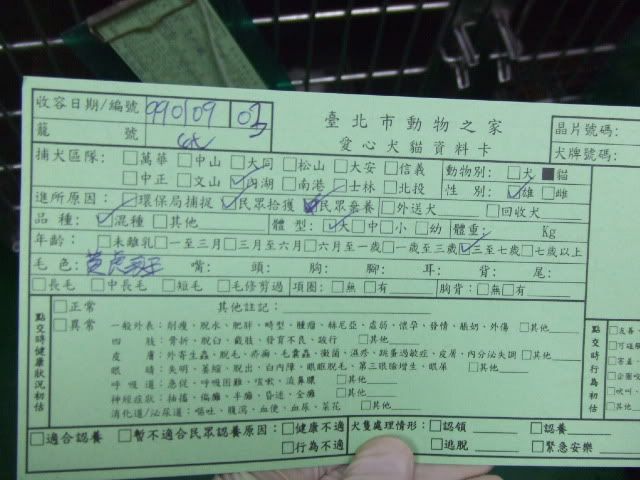 臺北市動物之家
愛心犬貓資料卡
收容日期/編號 990109 03
籠 號
晶片號碼:
犬牌號碼:
捕犬區隊: □萬華 □中山 □大同 □松山 □大安 □信義 動物別: □犬 ■貓
□中正 □文山 ☑內湖 □南港 □士林 □北投 性 別: ☑雄 □雌
進所原因: □環保局捕捉 ☑民眾拾獲 ☑民眾棄養 □外送犬 □回收犬
品 種: ☑混種 □其他 體 型: ☑大 □中 □小 □幼 體重: Kg
年齡: □未離乳 □一至三月 □三月至六月 □六月至一歲 □一歲至三歲 ☑三至七歲 □七歲以上
毛 色: 黄虎斑 嘴: 頭: 胸: 腳: 耳: 背: 尾:
□長毛 □中長毛 □短毛 □毛修剪過 項圈: □無 □有 胸背: □無 □有
點交時健康狀況初估
□正常 其他註記:
□異常 一般外表: 削瘦、脫水、肥胖、畸型、腫瘤、赫尼亞、虛弱、懷孕、發情、脹奶、外傷 □其他
四 肢: 骨折、脫臼、截肢、發育不良、跛行 □其他
皮 膚: 外寄生蟲、脫毛、疥癬、毛囊蟲、黴菌、濕疹、跳蚤過敏症、皮屑、內分泌失調 □其他
眼 睛: 失明、萎縮、脫出、白內障、眼瞼脫毛、第三眼瞼增生、眼屎 □其他
呼 吸 道: 急促、呼吸困難、咳嗽、流鼻膿 □其他
神經症狀: 抽搐、偏癱、半癱、昏迷、全癱 □其他
消化道/泌尿道: 嘔吐、腹瀉、血便、血尿、菜花 □其他
點交時行為初
□友善
□害羞
□吠叫
□適合認養 □暫不適合民眾認養原因: □健康不適 犬隻處理情形: □認領 □認養
□行為不適 □逃脫 □緊急安樂